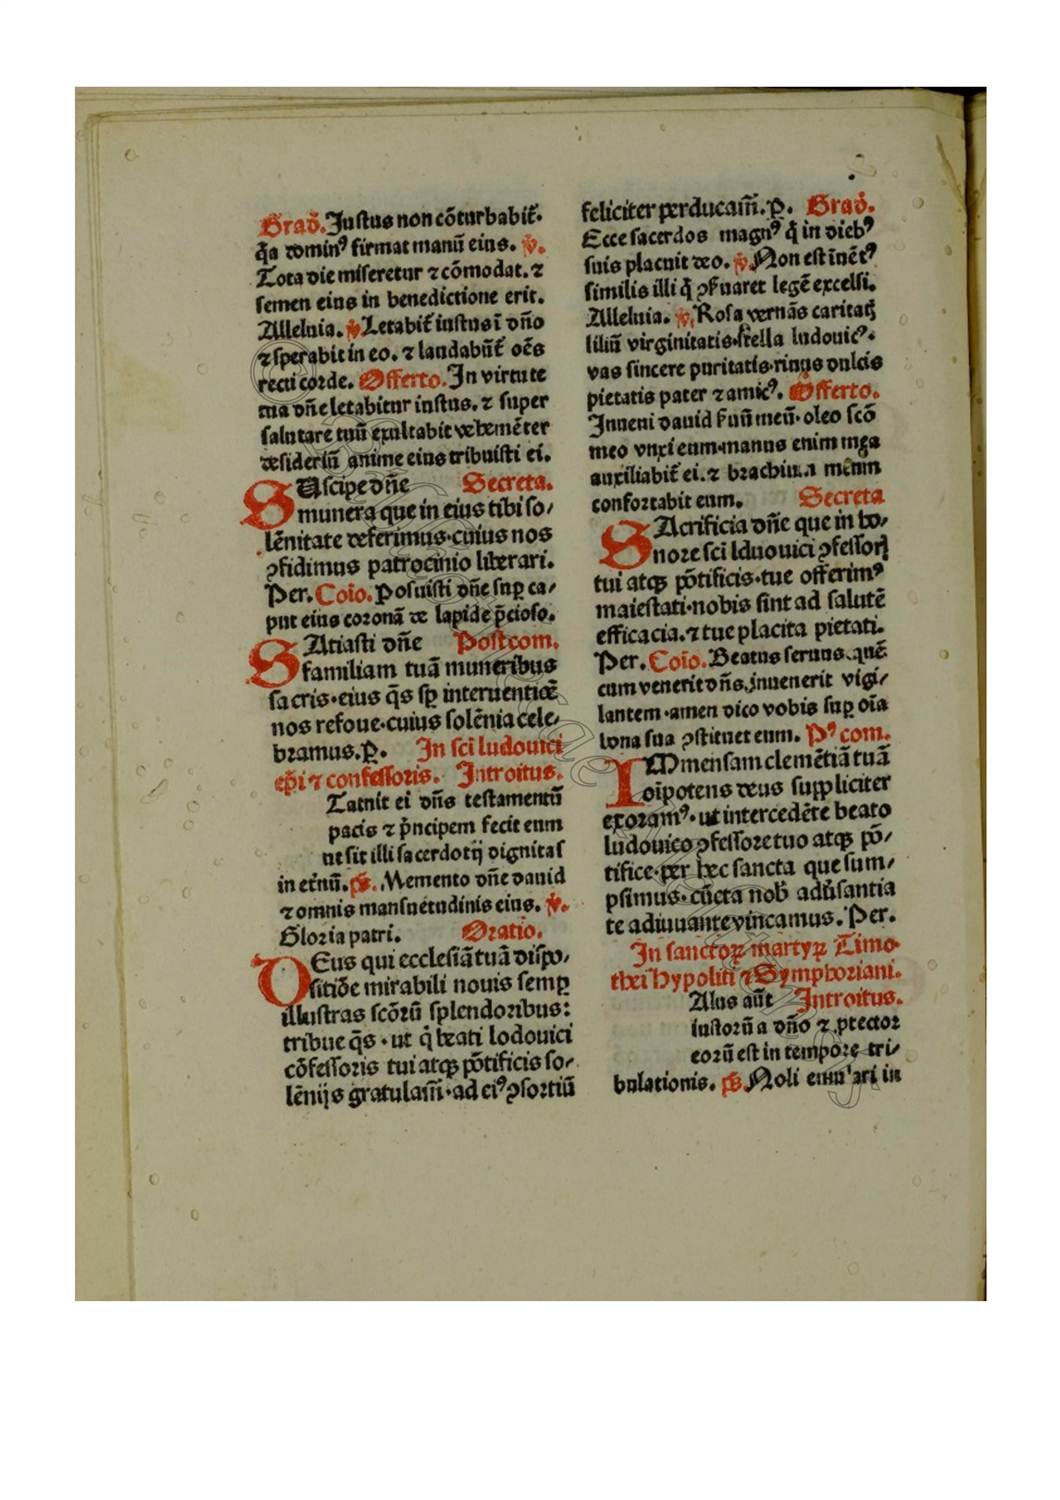 Grad̄. Justus non cōturbabit᷑.
q̄a domin⁹ firmat manū eius. v̄.
Tota die miseretur ⁊ cōmodat. ⁊
semen eius in benedictione erit.
Alleluia. v̄ Letabit᷑ iustus ī dn̄o
⁊ sperabit in eo. ⁊ laudabūt᷑ oēs
recti corde. Offerto. In virtute
tua dn̄e letabitur iustus. ⁊ super
salutare tuū exultabit vehemēter
desideriū anime eius tribuisti ei.
SUscipe dn̄e Secreta.
munera que in eius tibi so⸗
lēnitate deferimus·cuius nos
ꝯfidimus patrocinio liberari.
Per. Coīo. Posuisti dn̄e sup̱ ca⸗
put eius coronā de lapide p̄cioso.
SAtiasti dn̄e Postcom.
familiam tuā muneribus
sacris·eius q̄s sp̱ interuentiōē
nos refoue·cuius solēnia cele⸗
bramus. p̱. In sci ludouici
ep̄i ⁊ confessoris. Introitus.
Tatuit ei dn̄s testamentū
pacis ⁊ p̄ncipem fecit eum
ut sit illi sacerdotij dignitas
in et᷑nū. ps̄. Memento dn̄e dauid
⁊ omnis mansuetudinis eius. v̄.
Gloria patri. Oratio.
DEus qui ecclesiā tuā dispo⸗
sitiōe mirabili nouis semp̱
illustras scōrū splendoribus:
tribue q̄s·ut q̄ beati lodouici
cōfessoris tui atqꝫ pōtificis so⸗
lēnijs gratulam̄·ad ei⁹ ꝯsortiū
feliciter perducam̄. p̱. Grad̄.
Ecce sacerdos magn⁹ q̄ in dieb⁹
suis placuit deo. v̄ Non est īuēt⁹
similis illi q̄ ꝯẜuaret legē excelsi.
Alleluia. v̄. Rosa vernās caritatꝭ
liliū virginitatis·stella ludouic⁹·
vas sincere puritatis·riuus dulcis
pietatis pater ⁊ amic⁹. Offerto.
Inueni dauid ẜuū meū·oleo scō
meo vnxi eum·manus enim mea
auxiliabit᷑ ei. ⁊ brachium meum
confortabit eum. Secreta
SAcrificia dn̄e que in ho⸗
nore sci lduouici ꝯfessorꝭ
tui atqꝫ pōtificis·tue offerim⁹
maiestati·nobis sint ad salutē
efficacia.⁊ tue placita pietati.
Per. Coīo. Beatus seruus.quē
cum venerit dn̄s.inuenerit vigi⸗
lantem·amen dico vobis sup̱ oīa
bona sua ꝯstituet eum. P⁹ com.
IMmensam clemētiā tuā
oīpotens deus supp̱liciter
exoram⁹·ut intercedēte beato
ludouico ꝯfessore tuo atqꝫ pō⸗
tifice·per hec sancta que sum⸗
psimus·cūcta nob̄ aduͥsantia
te adiuuante vincamus. Per.
In sanctoꝝ martyꝝ Timo
thei Hypoliti ⁊ Symphoriani.
Alus aūt Introitus.
iustorū a dn̄o ⁊ ꝓtector
eorū est in tempore tri⸗
bulationis. ps̄ Noli emulari in